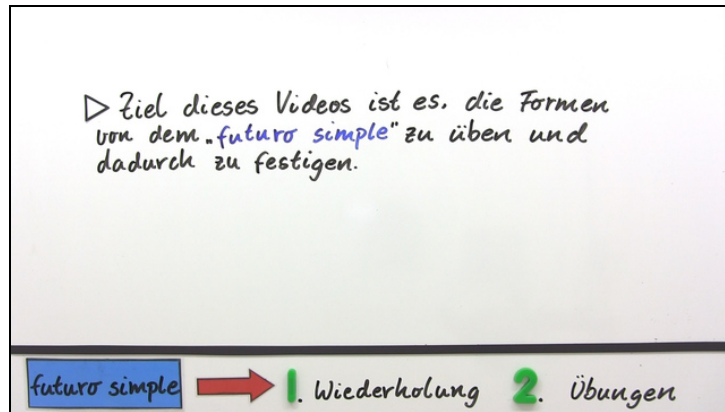 ▷ Ziel dieses Videos ist es, die Formen
von dem „futuro simple" zu üben und
dadurch zu festigen.
futuro simple 1. Wiederholung 2. Übungen